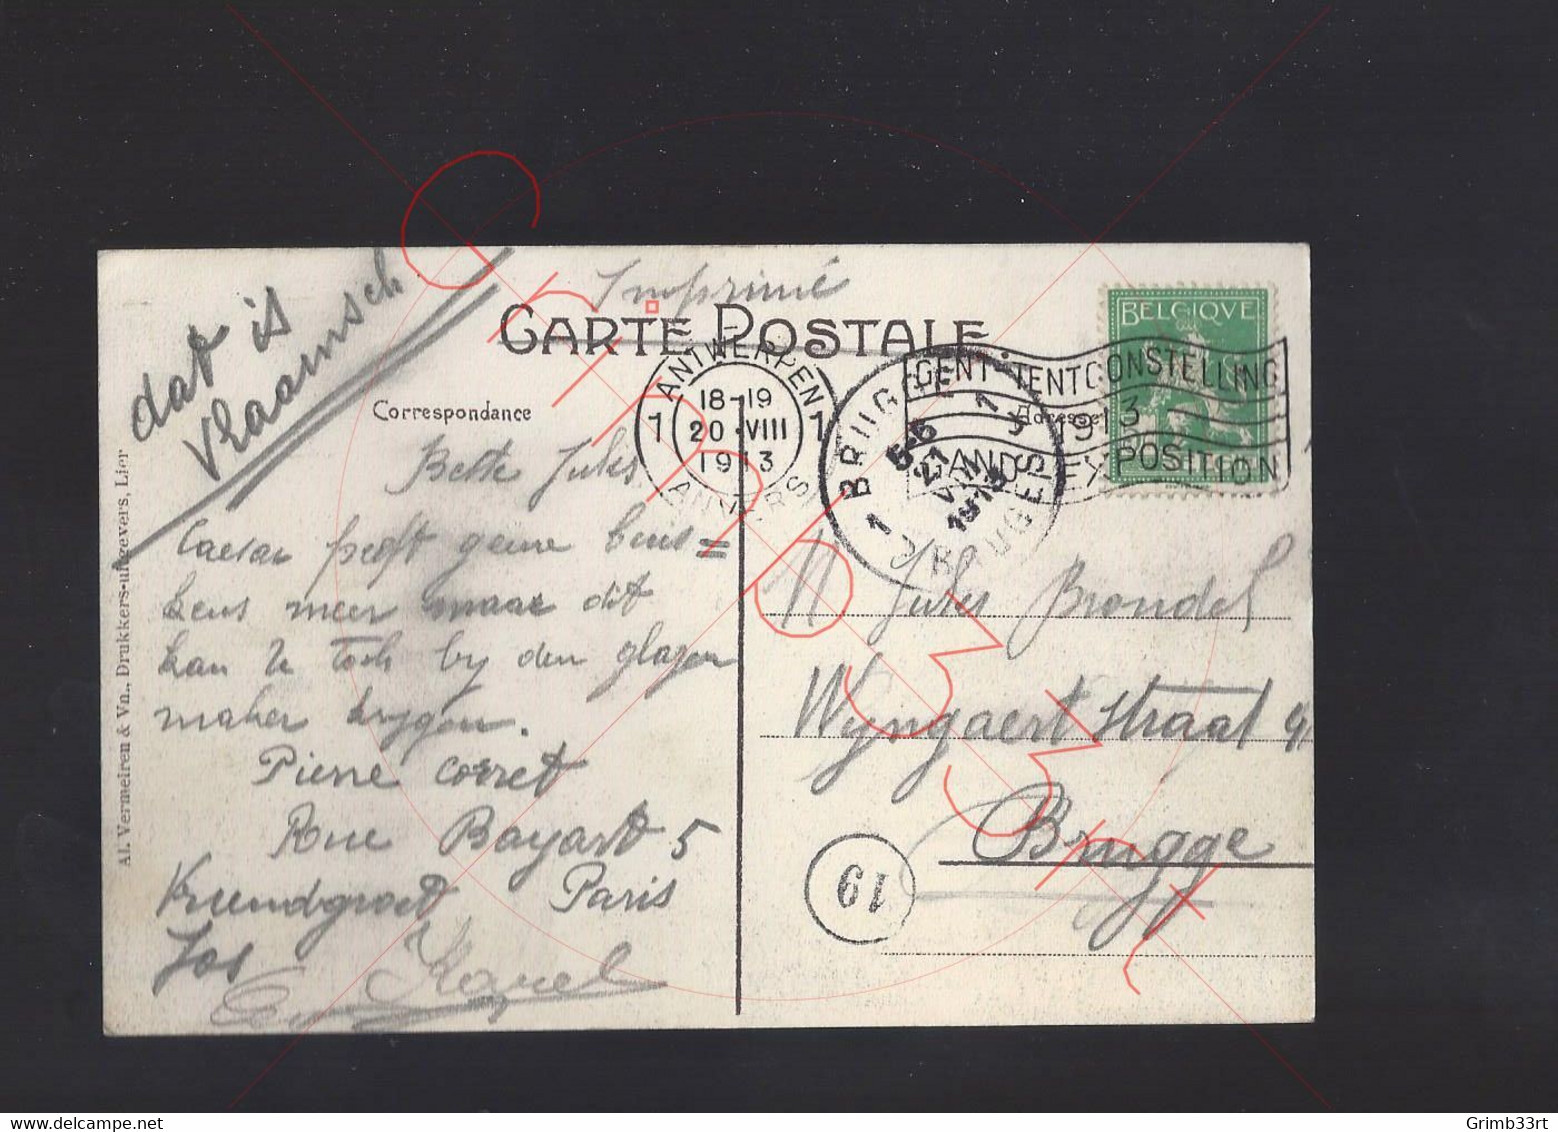 Imprimé
CARTE POSTALE
dat is
vlaamsch
Correspondance
Beste Jules.
Caesar heeft geene buis=
kens meer maar dit
kan U toch by den glazen
maker krygen.
Pierre Corret
Rue Bayart 5
Paris
Jos
Karel
BELGIQUE
ANTWERPEN
1 18-19 1
20 VIII
1913
ANVERS
GENT TENTOONSTELLING
1913
GAND EXPOSITION
Adresse
BRUGGE
1 1
5-6
21 VIII
1913
BRUGES
Jules Blondel
Wyngaertstraat
Brugge
19
Al. Vermeiren & Vn., Drukkers-uitgevers, Lier
Grimb33rt
Grimb33rt